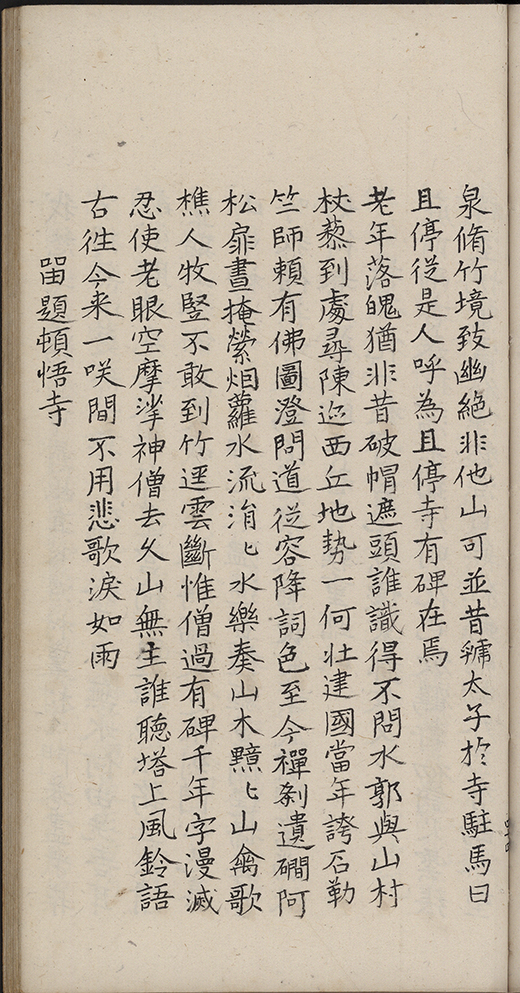 泉脩竹境致幽絶非他山可並昔虢太子於寺駐馬曰
且停從是人呼為且停寺有碑在焉
老年落魄猶非昔破帽遮頭誰識得不問水郭與山村
杖藜到處尋陳迹西丘地勢一何壯建國當年誇石勒
竺師頼有佛圖澄問道從容降詞色至今禪刹遺磵阿
松扉晝掩縈烟蘿水流㳙〻水樂奏山木黯〻山禽歌
樵人牧竪不敢到竹逕雲斷惟僧過有碑千年字漫滅
忍使老眼空摩挲神僧去乆山無主誰聴塔上風鈴語
古徃今来一咲間不用悲歌淚如雨
畱題頓悟寺